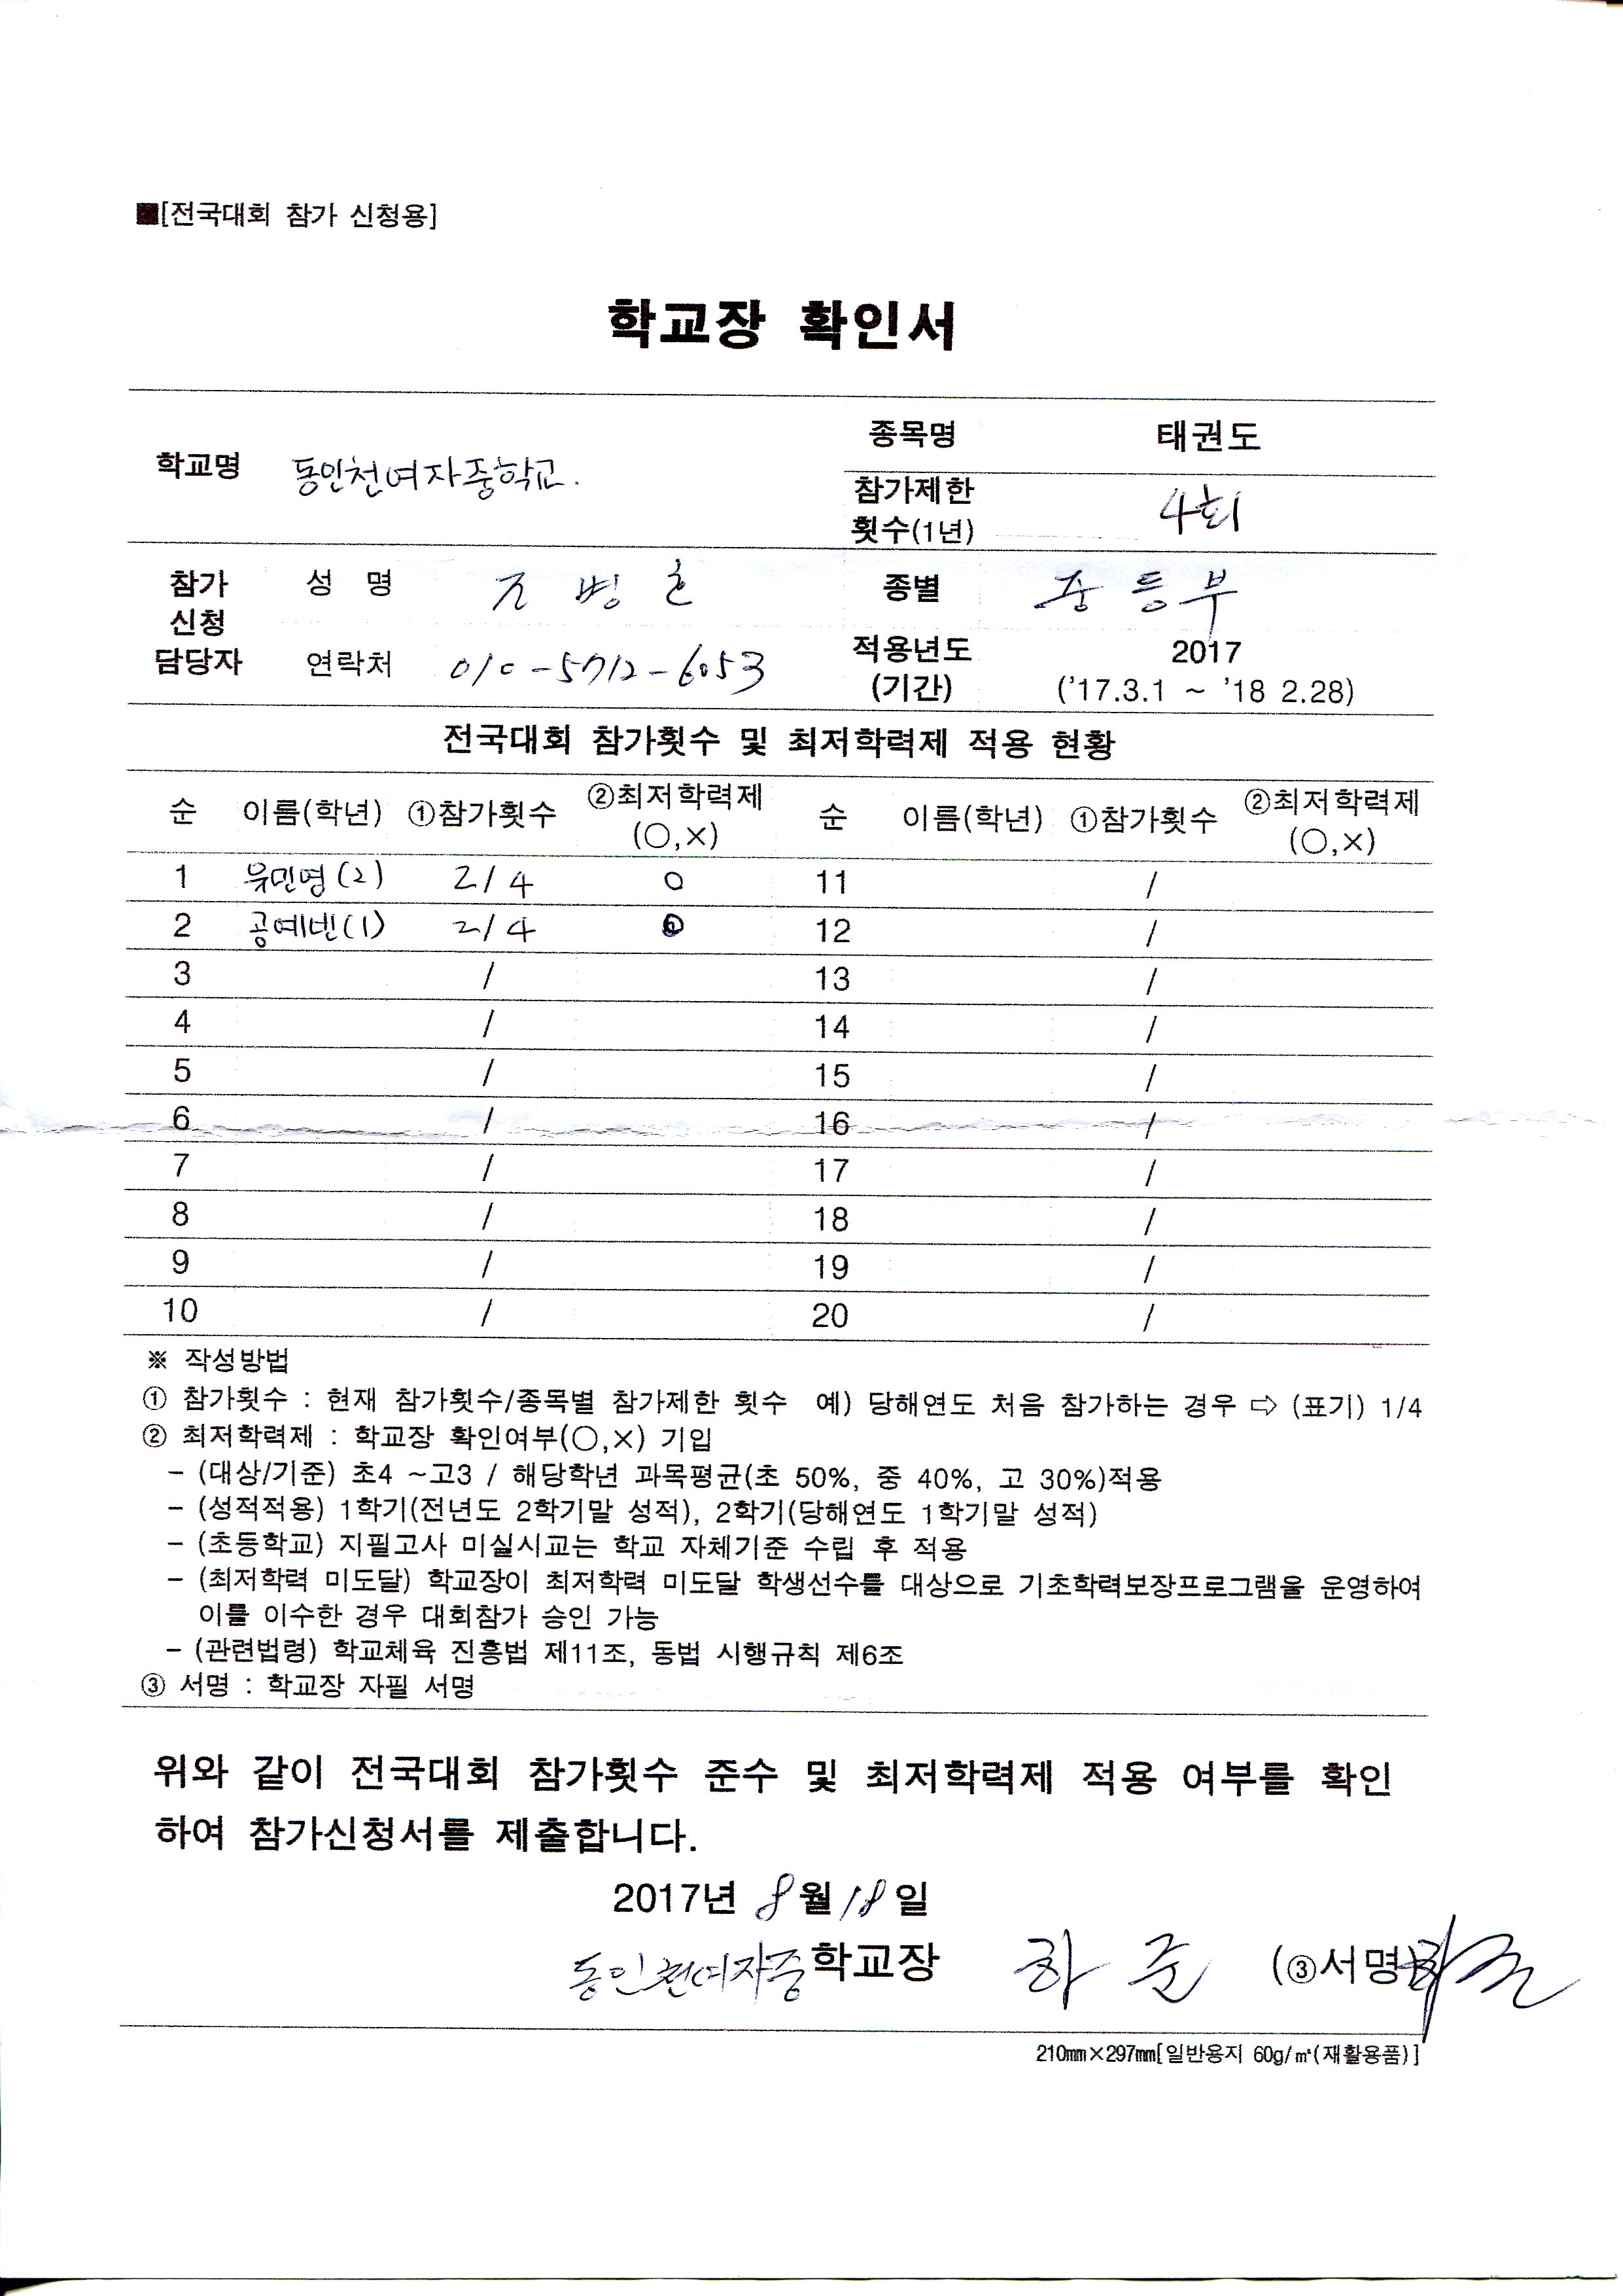 ■[전국대회 참가 신청용]
학교장 확인서
학교명 동인천여자중학교. 종목명 태권도
참가제한 횟수(1년) 4회
참가 신청 담당자 성 명 조 병 훈 종별 중등부
연락처 010-5712-6053 적용년도 (기간) 2017 ('17.3.1 ~ '18 2.28)
전국대회 참가횟수 및 최저학력제 적용 현황
순 이름(학년) ①참가횟수 ②최저학력제 (○,×) 순 이름(학년) ①참가횟수 ②최저학력제 (○,×)
1 유민영(2) 2/4 ○ 11 /
2 공예넨(1) 2/4 ○ 12 /
3 / 13 /
4 / 14 /
5 / 15 /
6 / 16 /
7 / 17 /
8 / 18 /
9 / 19 /
10 / 20 /
※ 작성방법
① 참가횟수 : 현재 참가횟수/종목별 참가제한 횟수 예) 당해연도 처음 참가하는 경우 ⇨ (표기) 1/4
② 최저학력제 : 학교장 확인여부(○,×) 기입
- (대상/기준) 초4 ~고3 / 해당학년 과목평균(초 50%, 중 40%, 고 30%)적용
- (성적적용) 1학기(전년도 2학기말 성적), 2학기(당해연도 1학기말 성적)
- (초등학교) 지필고사 미실시교는 학교 자체기준 수립 후 적용
- (최저학력 미도달) 학교장이 최저학력 미도달 학생선수를 대상으로 기초학력보장프로그램을 운영하여
이를 이수한 경우 대회참가 승인 가능
- (관련법령) 학교체육 진흥법 제11조, 동법 시행규칙 제6조
③ 서명 : 학교장 자필 서명
위와 같이 전국대회 참가횟수 준수 및 최저학력제 적용 여부를 확인
하여 참가신청서를 제출합니다.
2017년 8월 18일
동인천여자중학교장 하 준 (③서명) 하준
210mm×297mm[일반용지 60g/㎡(재활용품)]